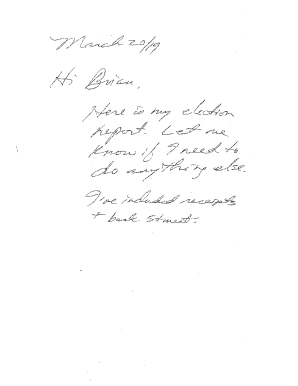 March 20/19
Hi Brian,
Here is my election
report. Let me
know if I need to
do anything else.
I've included receipts
+ bank